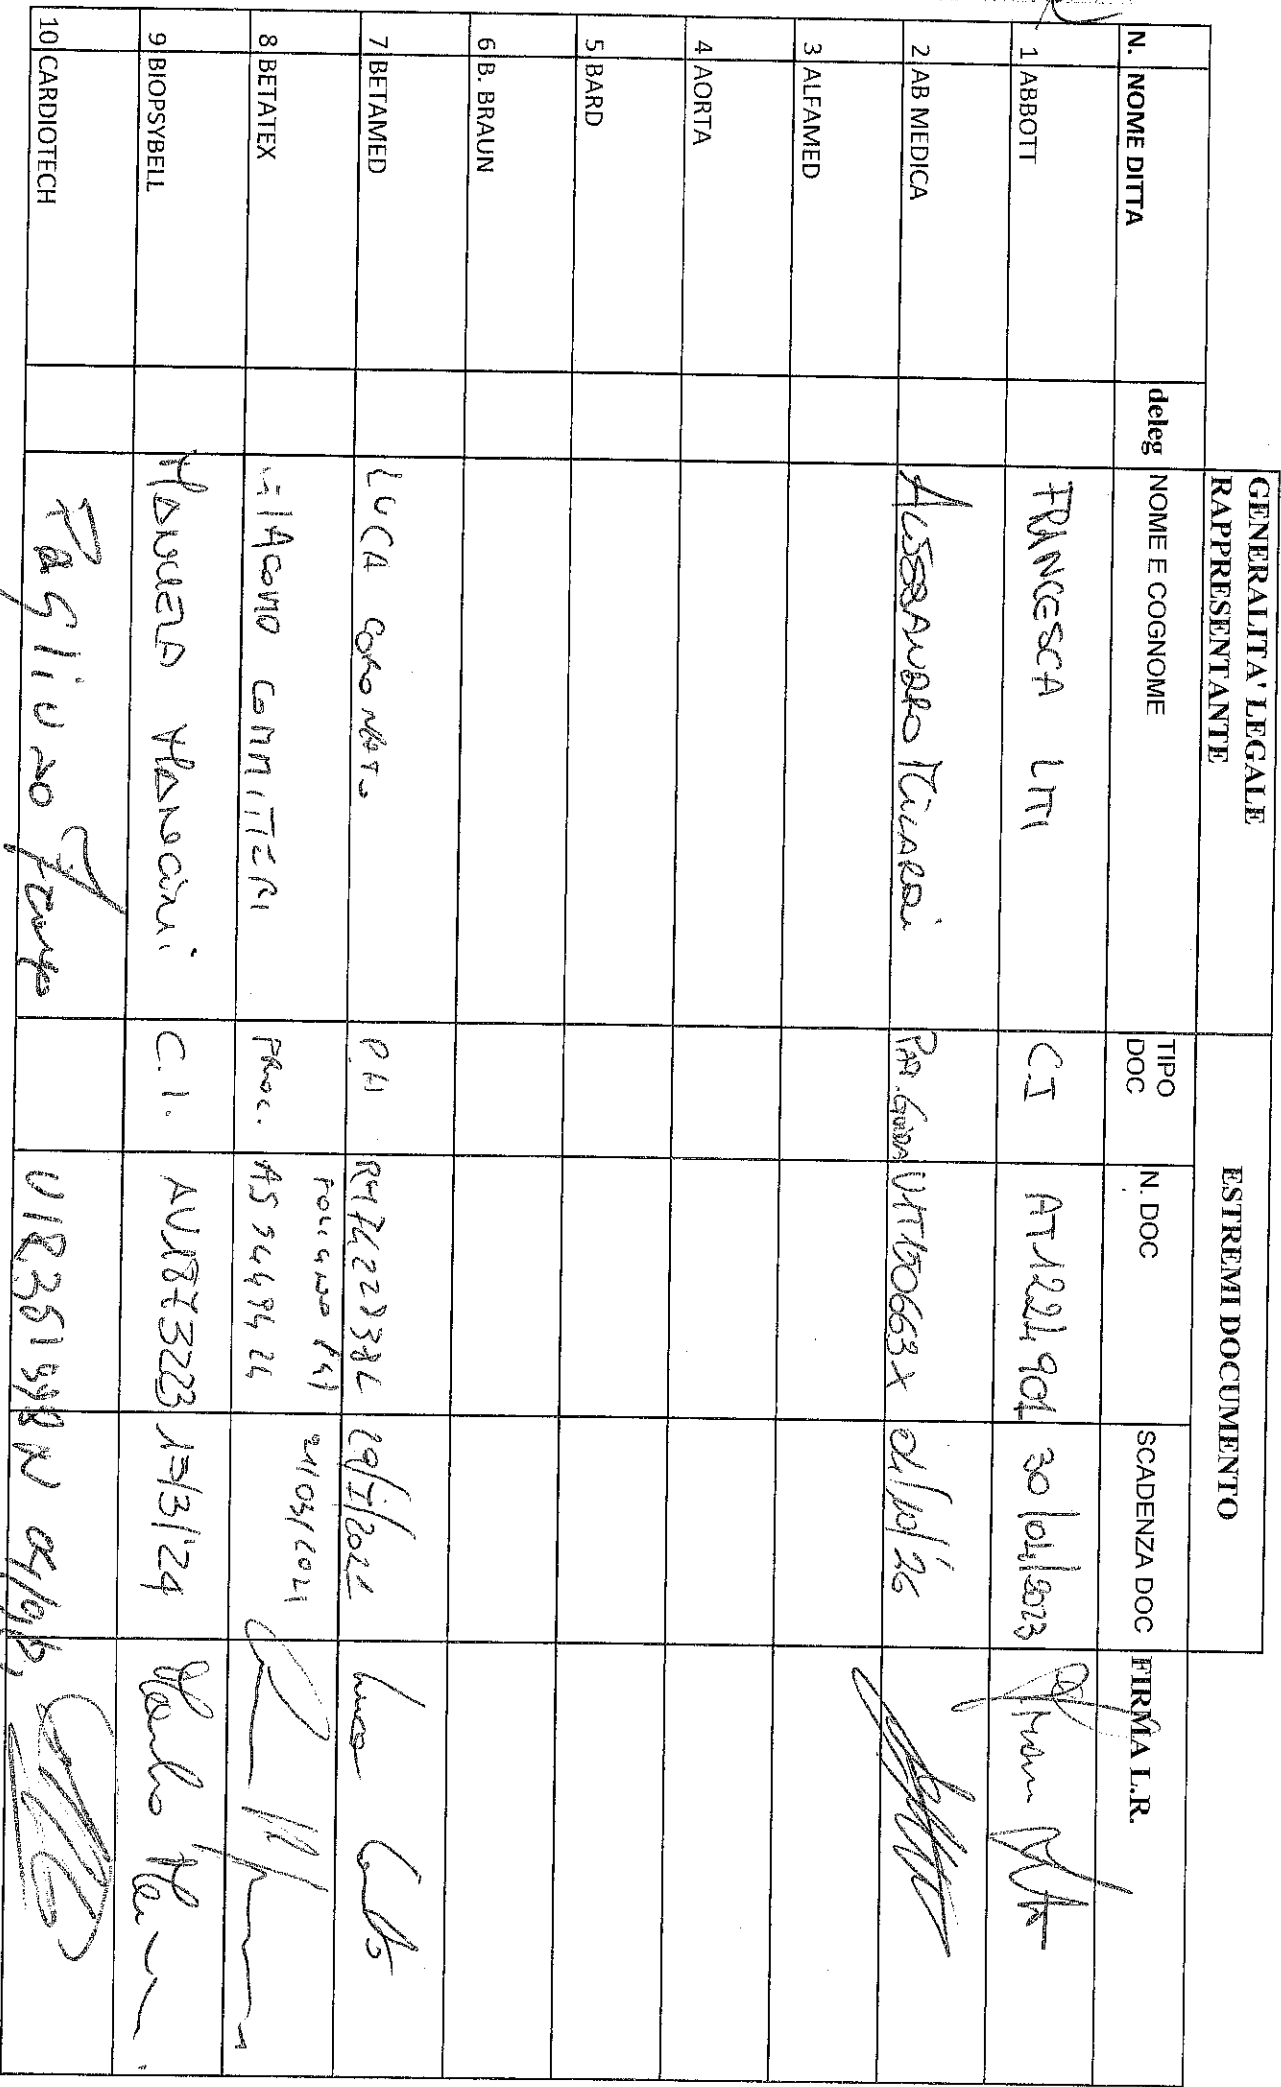 GENERALITA' LEGALE
RAPPRESENTANTE
ESTREMI DOCUMENTO
N. NOME DITTA deleg NOME E COGNOME TIPO DOC N. DOC SCADENZA DOC FIRMA L.R.
1 ABBOTT FRANCESCA LITTI C.I AT1221901 30/04/2023
2 AB MEDICA ALESSANDRO MILARDI PAT. GUIDA U1T150663X 01/10/26
3 ALFAMED
4 AORTA
5 BARD
6 B. BRAUN
7 BETAMED LUCA CORONATO 29/I/2021 Luca
8 BETATEX GIACOMO COMMITTERI 21/03/2021
9 BIOPSYBELL MANUELA MANCINI C.I. AU1873223 17/3/24
10 CARDIOTECH Pagliuso